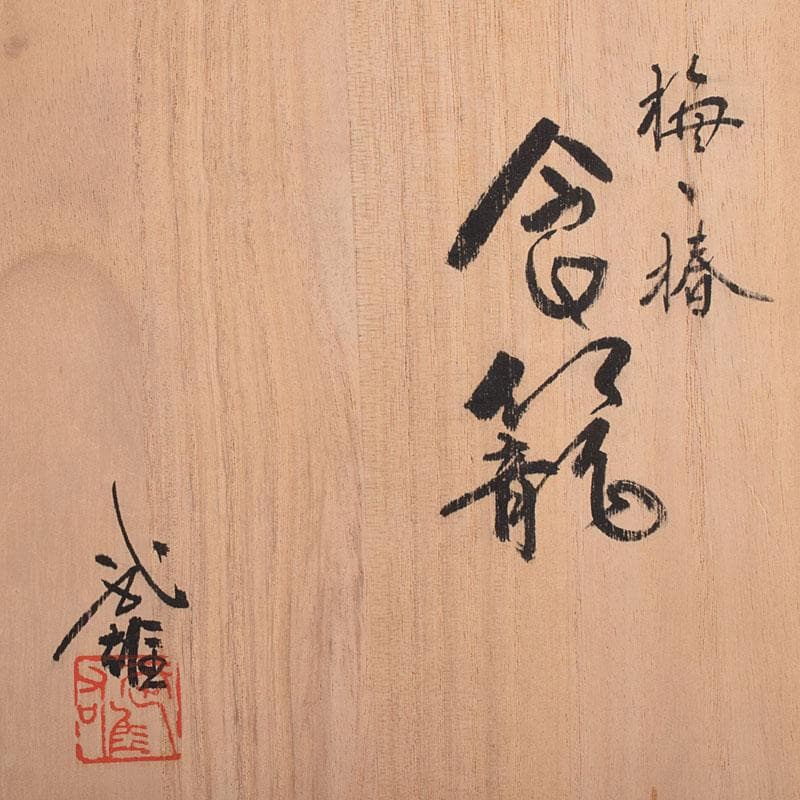 梅、椿
食籠
武雄